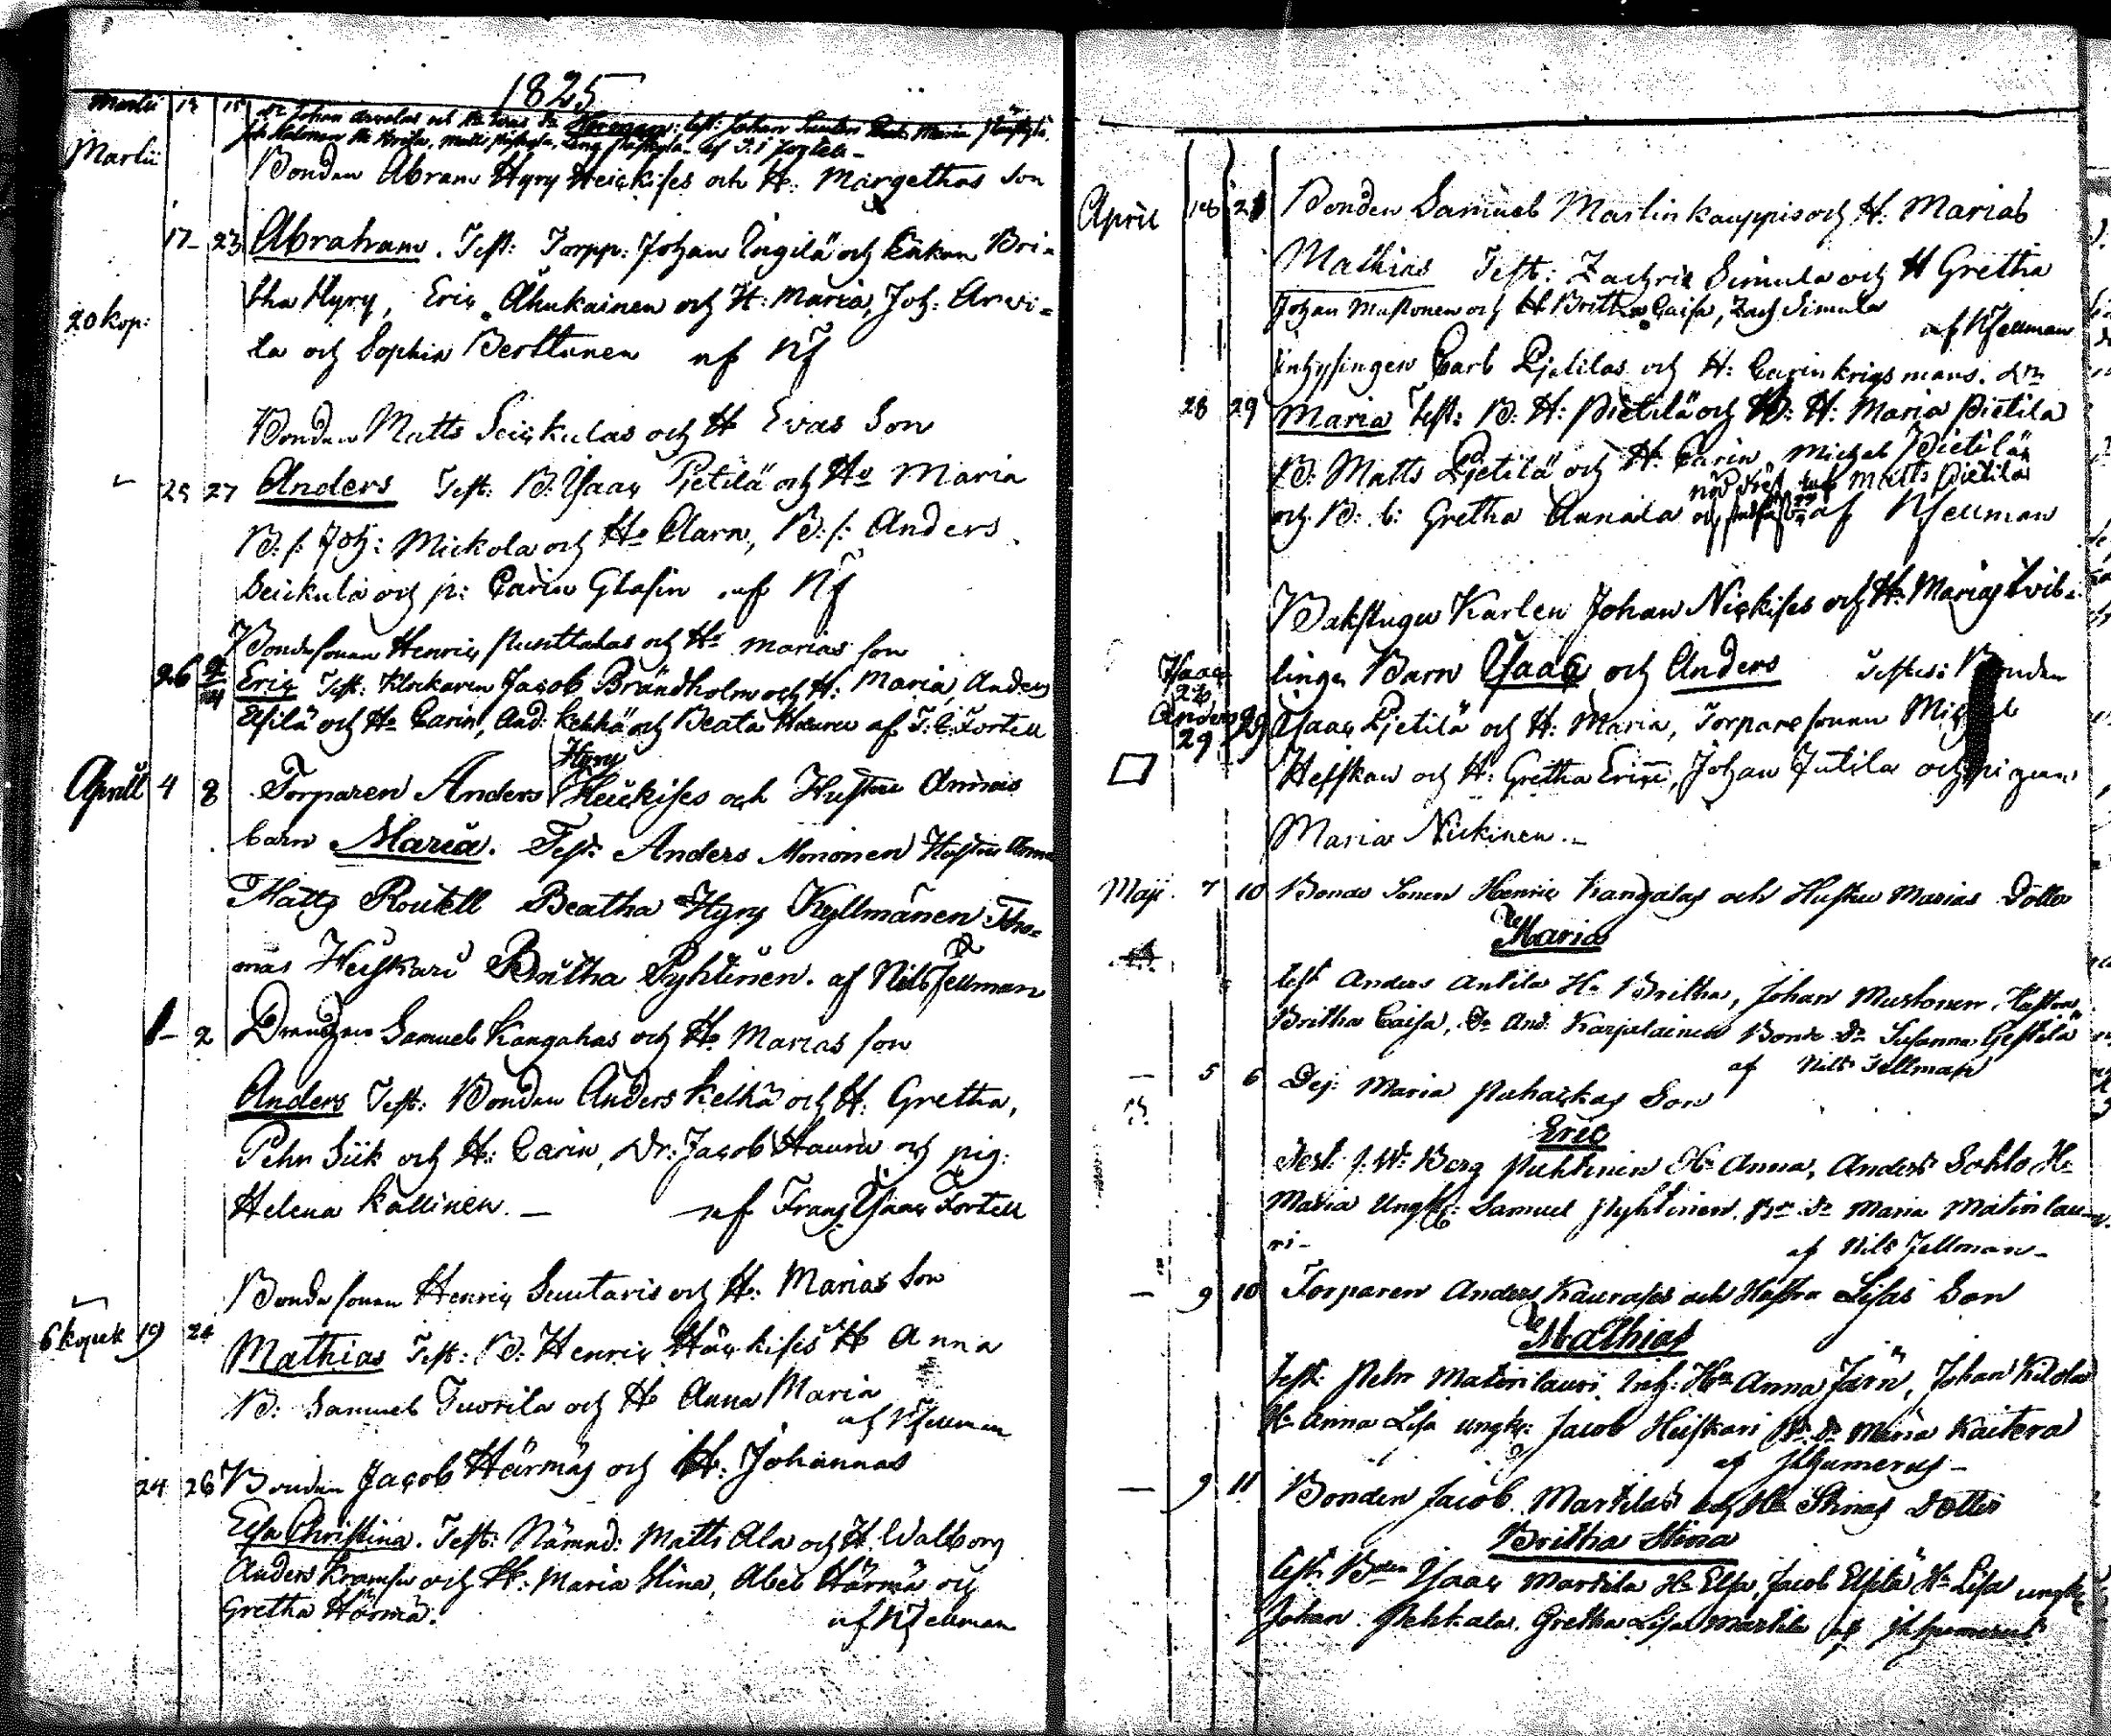 1825
Martii
Bonden Abram Hyry Heickises och H: Margethas Son
17 23 Abraham. Test: Torpp: Johan Engilä och Enkan Bri-
tha Hyry, Eric Ahukainen och H: Maria, Joh: Arvi-
20 kop:
la och Sophia Berttunen af NF
Bonden Matts Seickulas och H Evas Son
25 27 Anders Test: B: Isaac Pietilä och Ho Maria
B: s: Joh: Mickola och Ho Clara, B: s: Anders
Seickula och p: Carin Glasin af NF
Bondesonen Henric Punttalas och Ho Marias son
26 Eric Test: Klockaren Jacob Brändholm och H: Maria, Anders
Elfilä och Ho Carin, And: Kelhä och Beata Hauru af F: I: Fortell
Hyry
April 4 8 Torparen Anders Heickises och Hustru Annas
barn Maria. Test: Anders Mononen Hustru Anna
Matts Routell Beatha Hyry Kyllmänen Tho-
mas Heiskari Britha Pyhtinen. af Nils Fellman
1 2 Drengen Samuel Kangahas och Ho Marias son
Anders Test: Bonden Anders Kelhä och H: Gretha,
Pehr Siik och H: Carin, Dr: Jacob Hauru och pig:
Helena Kallinen. — af Franz Isaac Fortell
Bondesonen Henric Suutaris och H: Marias Son
6 kopek 19 24
Mathias Test: B: Henric Häckises H Anna
B: Samuel Tuorila och H Anna Maria
af NFellman
24 26 Bonden Jacob Härmäs och H: Johannas
Elsa Christina. Test: Nämnd: Matts Ala och H. Walborg
Anders Kramsu och H: Maria Stina, Abel Härmä och
Gretha Härmä. af NFellman
April 18 21 Bonden Samuel Martinkauppis och H: Marias
Mathias Test: Zachris Simula och H Gretha
Johan Mustonen och H Britha Caisa, Zach Simula
af NFellman
Inhysingen Carl Pietilas och H: Carin Krigsmans. dr
28 29 Maria Test: B: H: Pietilä och B: H: Maria Pietila
B: Matts Pietilä och H: Carin Michel Pietilä
Matts Pietilä
och B: d: Gretha Annala af NFellman
Bakstugu Karlen Johan Nickises och H: Marias tvil-
Isaac
linge Barn Isaac och Anders Testes: Bonden
Anders 29
29 Isaac Pietilä och H: Maria, Torparesonen Michel
Heiskan och H: Gretha Eric, Johan Jutila och pigan
Maria Nickinen.—
Maji 7 10 Bonde Sonen Henric Kangalas och Hustru Marias Dotter
Maria
test Anders Antila Ho Britha, Johan Mustonen Hustru
Britha Caisa, Dr And: Karjalainen Bonde Dr Susanna
af Nils Fellman
5 6 Pig: Maria Puhackas Son
Eric
Test: Berg Puhtinen Ho Anna, Anders Sohlo Ho
Maria Ungk: Samuel Pyhtinen, Bo Dr Maria Matinlau-
ri— af Nils Fellman—
9 10 Torparen Anders Kaurases och Hustru Lisas Son
Mathias
test: Pehr Matinlauri Inh: Hu Anna Järn, Johan Kilola
Ho Anna Lisa ungk: Jacob Heiskari Bo Dr Maria Kaitera
9 11 Bonden Jacob Martilas och Ho Stinas Dotter
Britha Stina
test: Bden Isaac Martila Ho Elsa, Jacob Elfilä Ho Lisa ungk
Johan Pehkala. Gretha Lisa Martila af